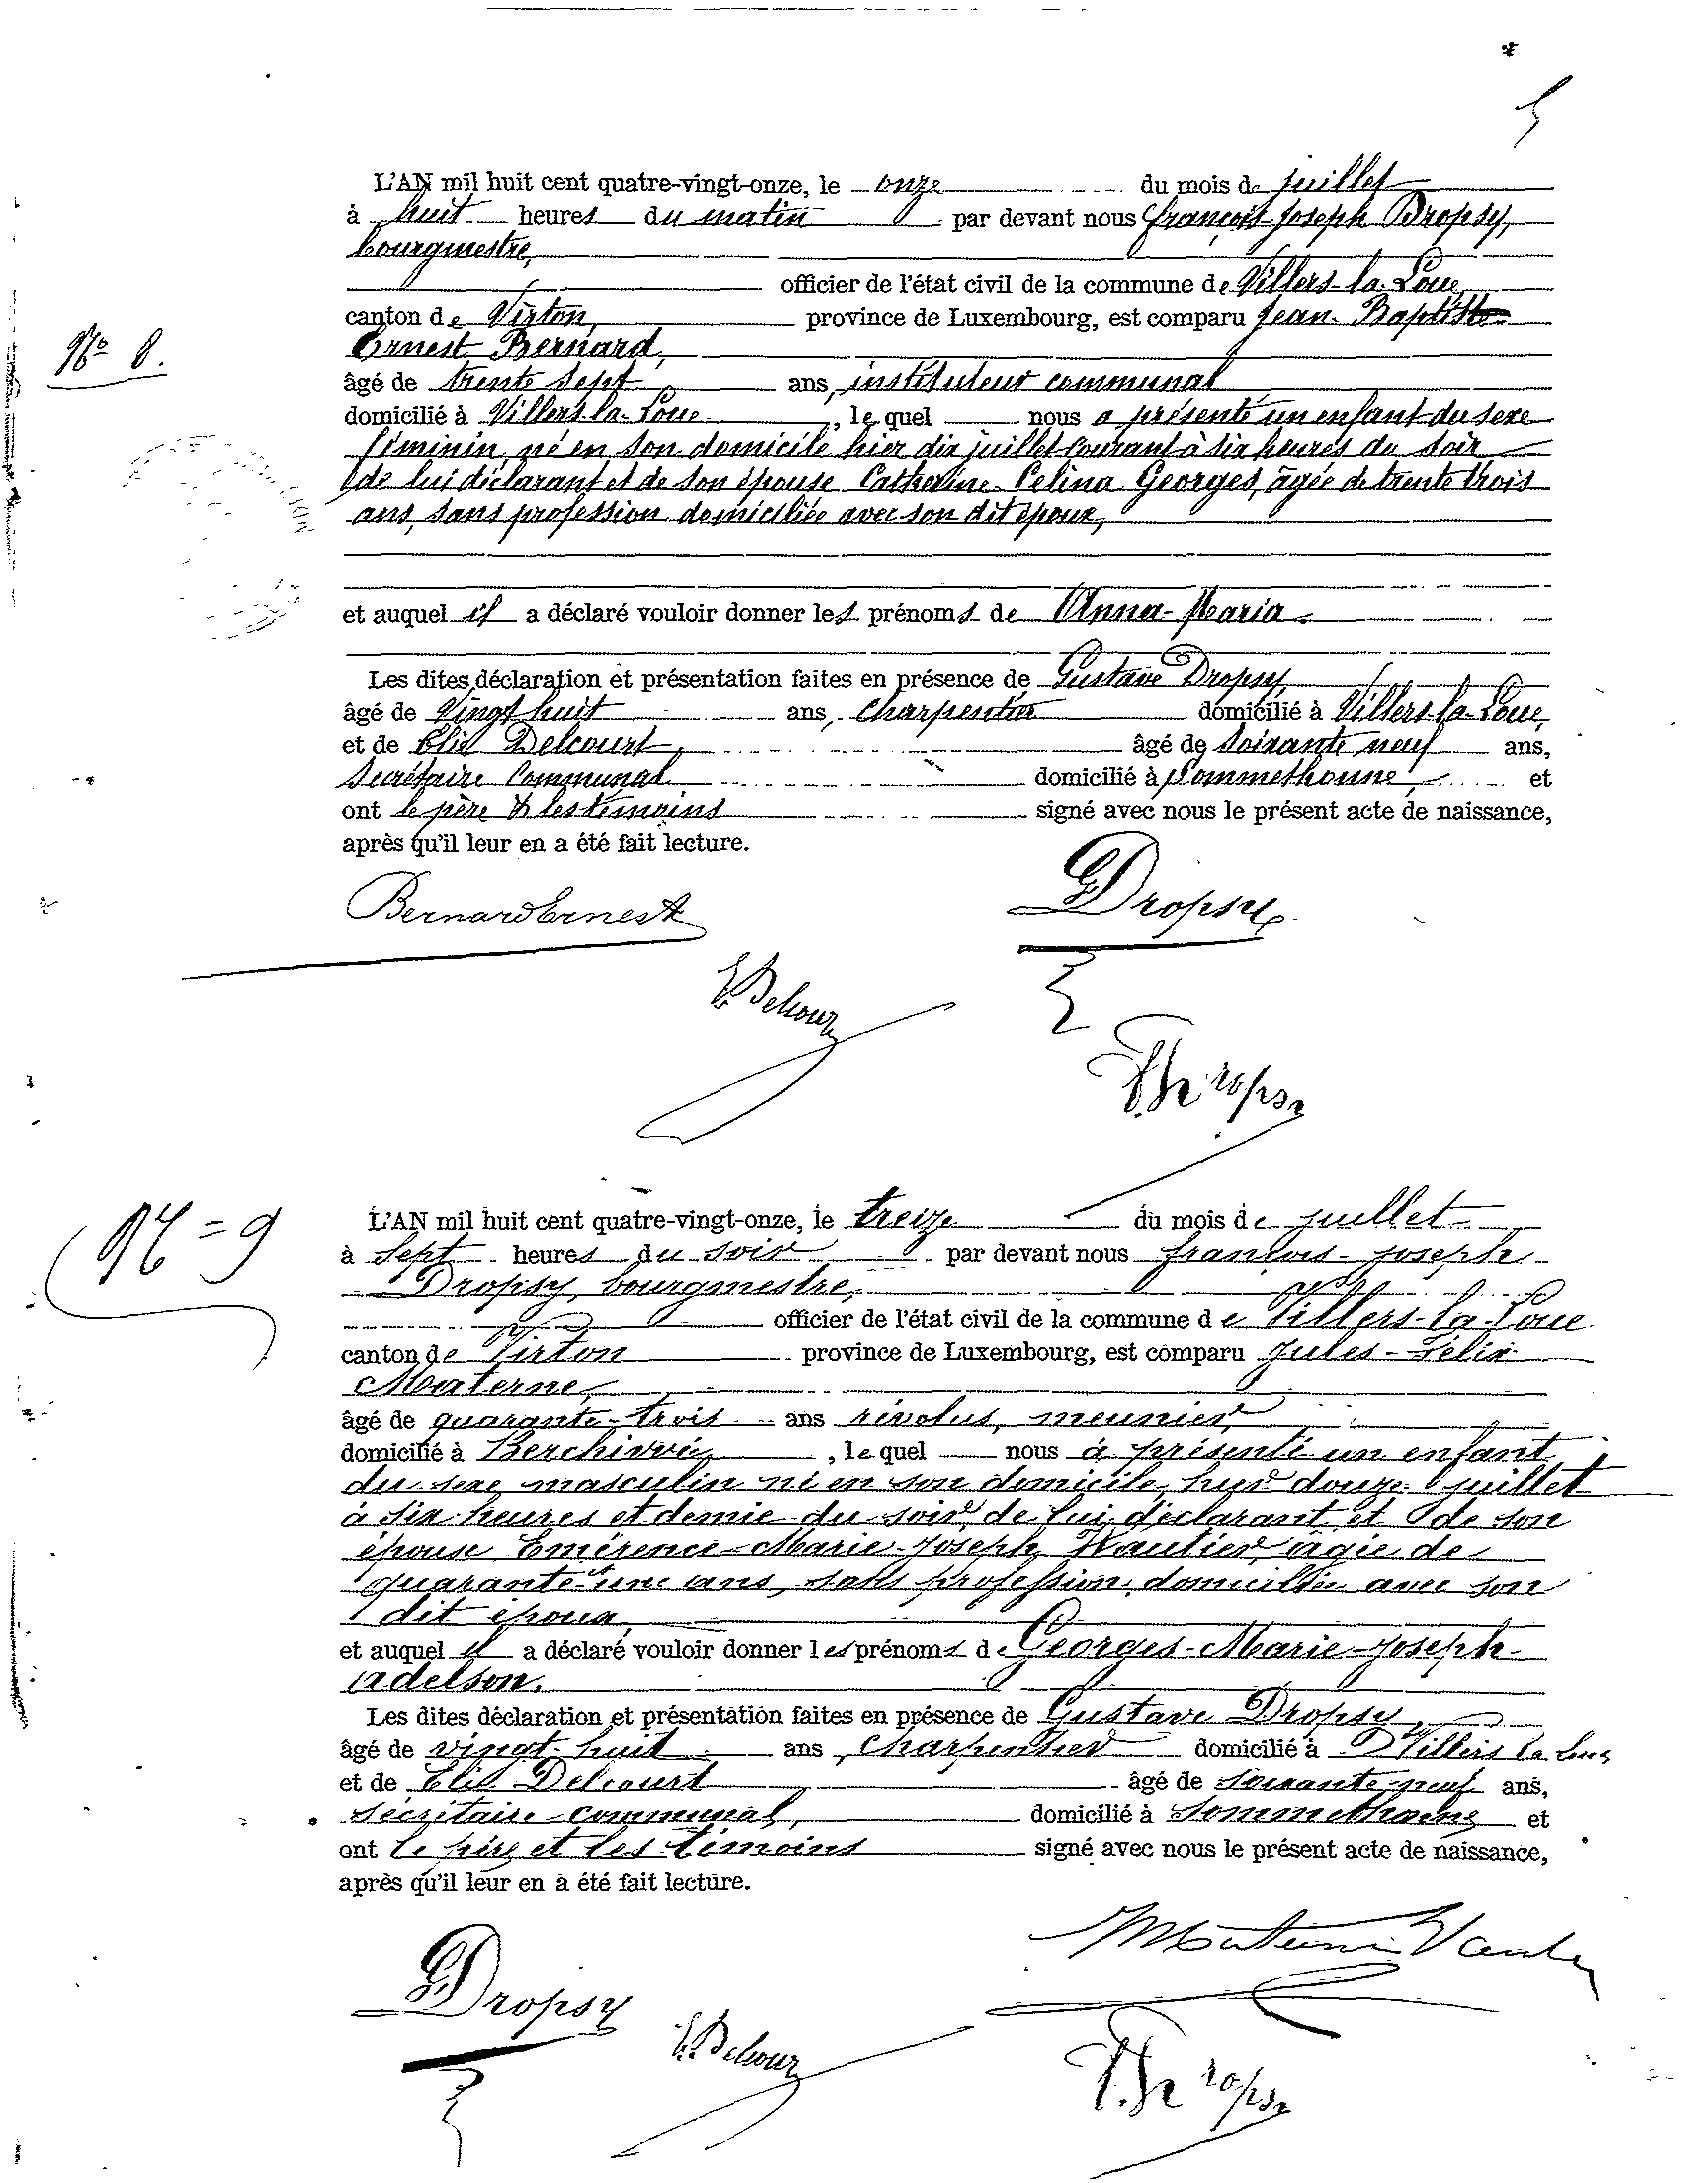 5
L'AN mil huit cent quatre-vingt-onze, le onze du mois de juillet
à huit heures du matin par devant nous françois-Joseph Dropsy,
bourgmestre,
officier de l'état civil de la commune de Villers-la-Loue,
canton de Virton, province de Luxembourg, est comparu Jean-Baptiste
Nº 8.
Ernest Bernard,
âgé de trente sept ans, instituteur communal
domicilié à Villers-la-Loue, lequel nous a présenté un enfant du sexe
féminin, né en son domicile hier dix juillet courant à six heures du soir
de lui déclarant et de son épouse Catherine Celina Georges, âgée de trente trois
ans, sans profession domiciliée avec son dit époux,
et auquel il a déclaré vouloir donner les prénoms de Anna-Maria
Les dites déclaration et présentation faites en présence de Gustave Dropsy,
âgé de Vingt huit ans, Charpentier domicilié à Villers-la-Loue,
et de Elie Delcourt, âgé de Soixante neuf ans,
Secrétaire Communal domicilié à Sommethonne, et
ont le père & les témoins signé avec nous le présent acte de naissance,
après qu'il leur en a été fait lecture.
Bernard Ernest
G Dropsy
E. Delcour
F. J. Dropsy
Nº = 9
L'AN mil huit cent quatre-vingt-onze, le treize du mois de juillet
à Sept heures du soir par devant nous françois-joseph
Dropsy, bourgmestre,
officier de l'état civil de la commune de Villers-la-Loue
canton de Virton province de Luxembourg, est comparu Jules-Félix
Materne,
âgé de quarante-trois ans révolus, meunier,
domicilié à Berchivée, lequel nous à présenté un enfant
du sexe masculin né en son domicile, hier douze juillet
à six heures et demie du soir, de lui déclarant et de son
épouse Emérence-Marie-Joseph Wautier âgée de
quarante-une ans, sans profession, domiciliée avec son
dit époux,
et auquel il a déclaré vouloir donner les prénoms de Georges-Marie-Joseph-
adelson.
Les dites déclaration et présentation faites en présence de Gustave Dropsy
âgé de vingt-huit ans, charpentier domicilié à Villers la Loue
et de Elie Delcourt âgé de Soixante-neuf ans,
Secrétaire-communal, domicilié à Sommethonne et
ont le père et les témoins signé avec nous le présent acte de naissance,
après qu'il leur en a été fait lecture.
Materne Vautier
G Dropsy
E. Delcour
F. J. Dropsy